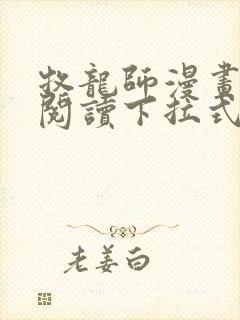 牧龍師漫畫
閱讀下拉式
老姜白